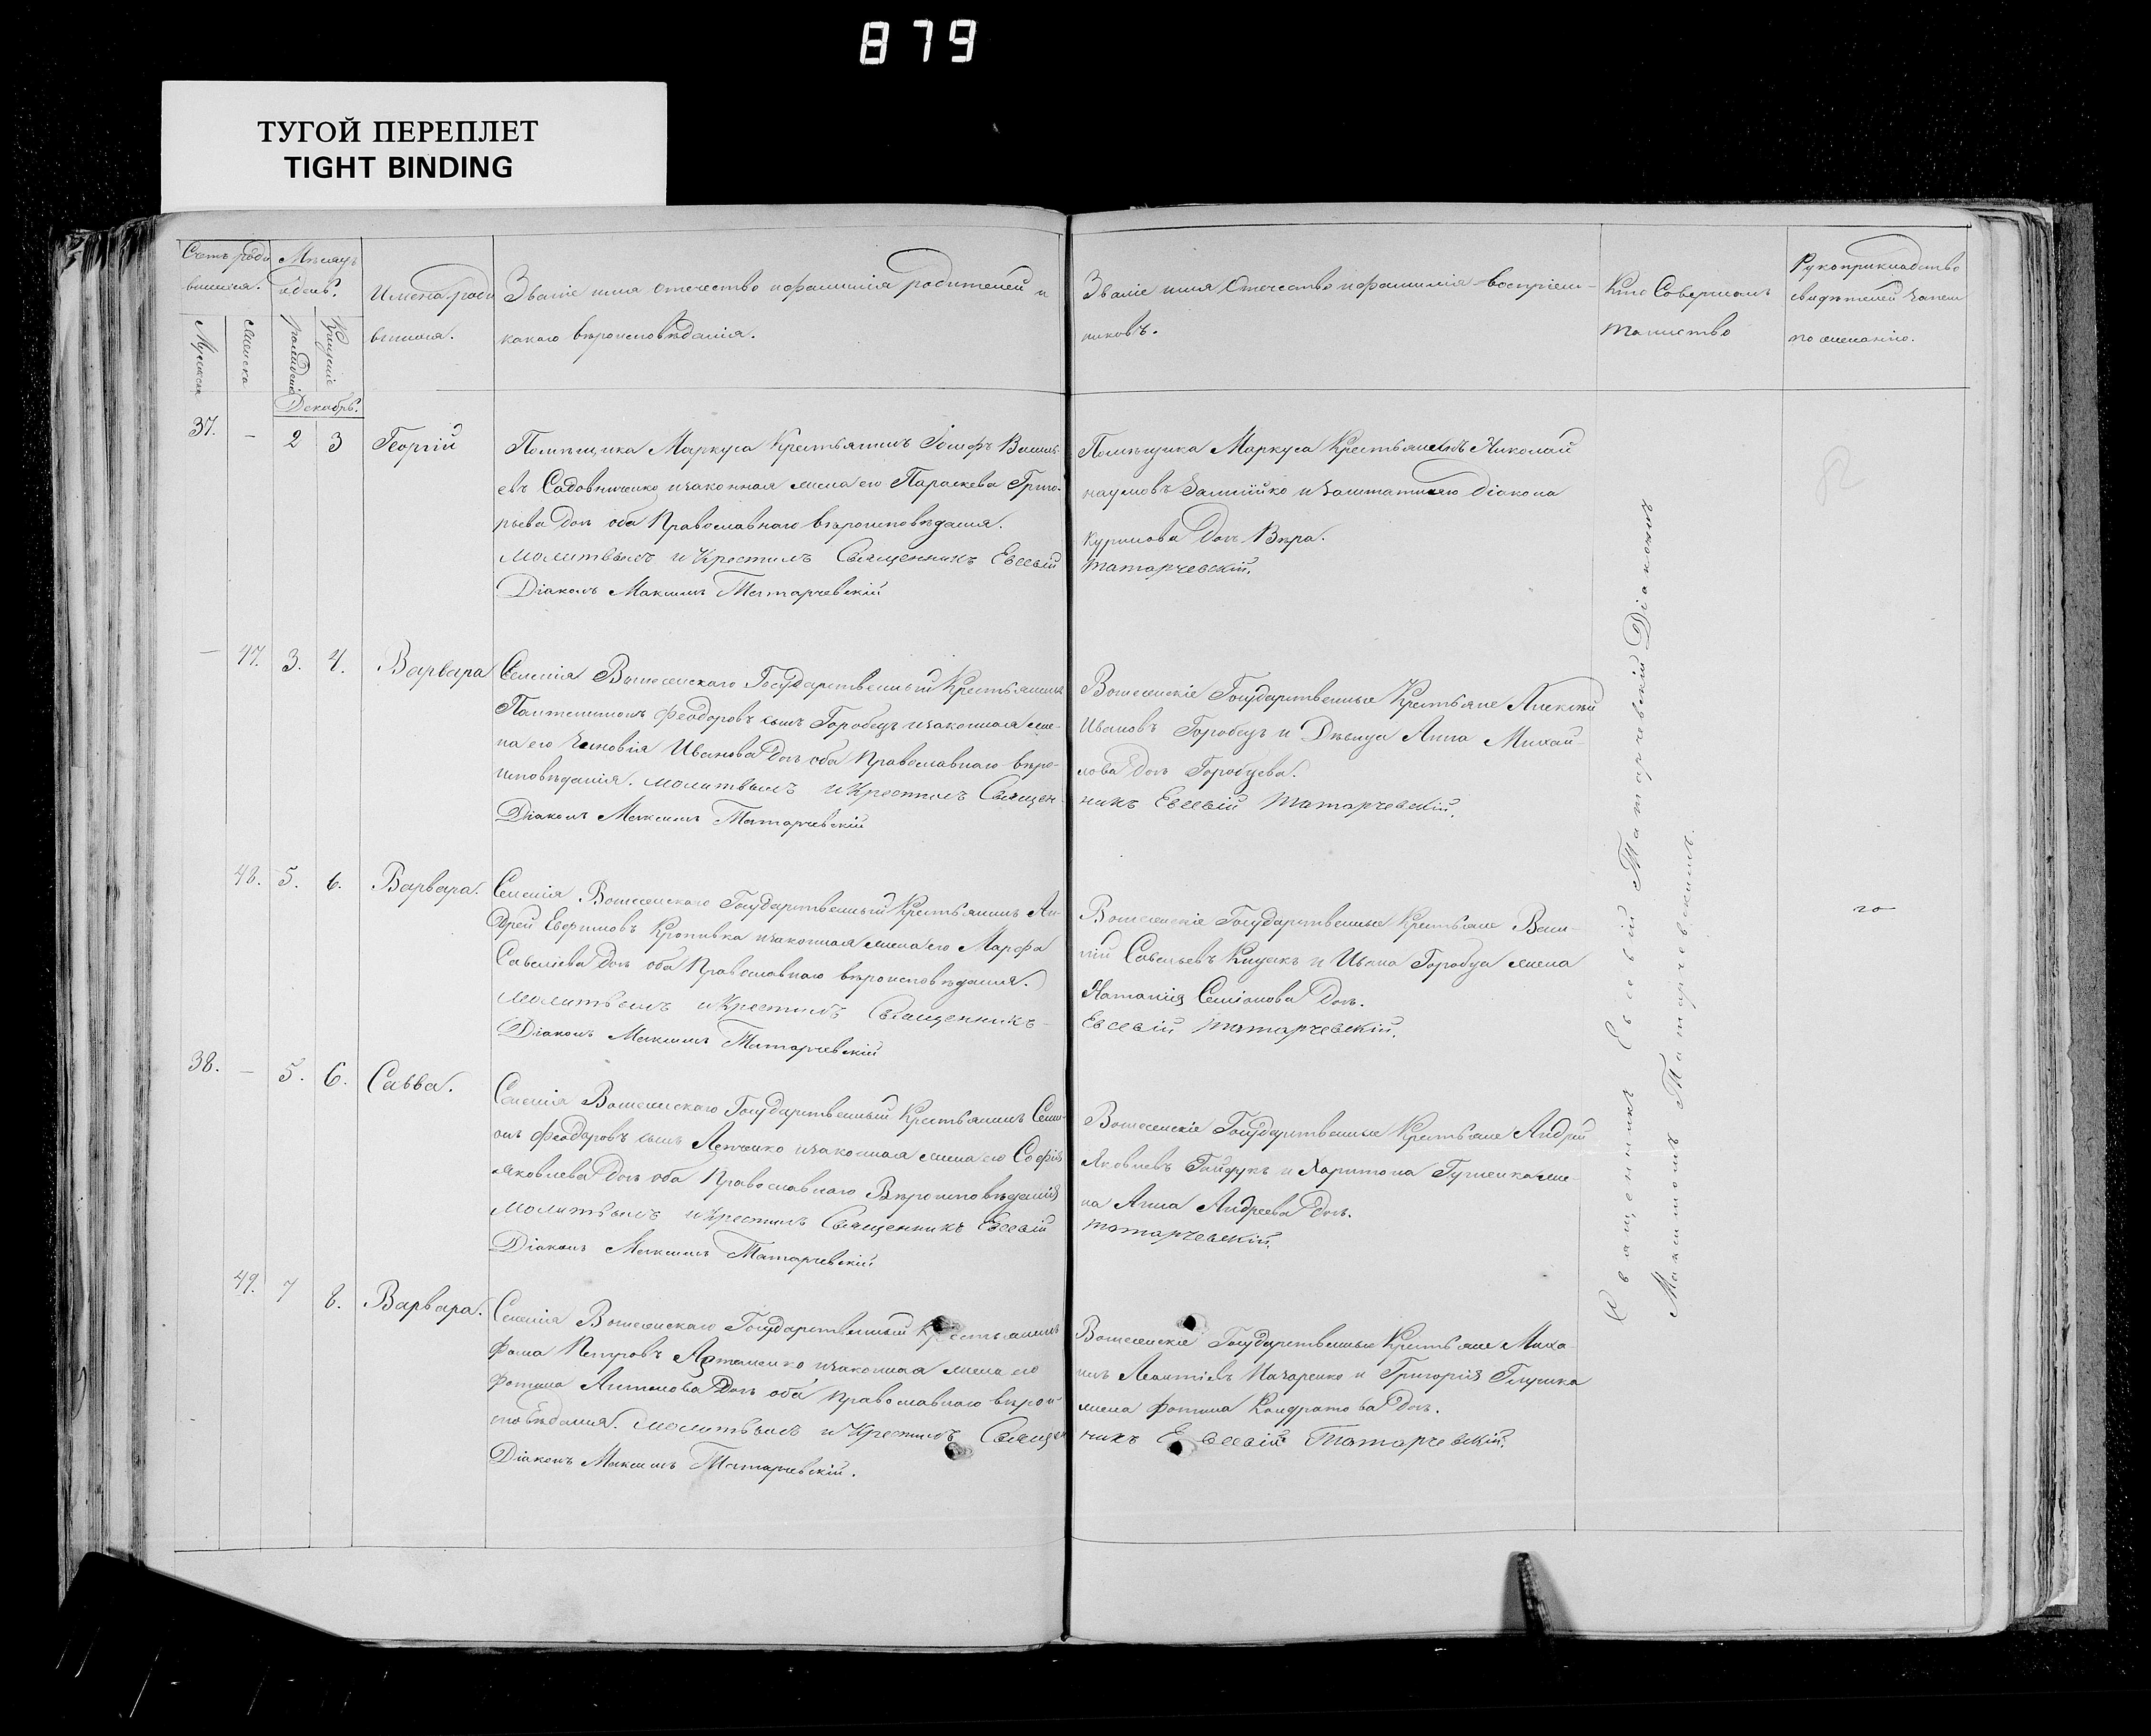 879
ТУГОЙ ПЕРЕПЛЕТ
TIGHT BINDING
Счетъ роди
вшихся.
Мѣсяцъ
и день.
Имена роди
вшихся.
Званіе имя отечество и фамилія родителей и
какого вѣроисповѣданія.
Мужеска
Женска
рожденіе
Крещеніе
Декабрь.
Званіе имя Отечество и фамилія воспріем-
никовъ.
Кто Совершалъ
таинство
Рукоприкладство
свидѣтелей записи
по желанію.
37.
-
2
3
Георгій
Помѣщика Маркуса Крестьянинъ Іосифъ Василь
евъ Садовниченко и законная жена его Параскева Григо-
рьева Дочь оба Православнаго вѣроисповѣданія.
Молитвилъ и Крестилъ Священникъ Евсевій
Діаконъ Максимъ Татарчевскій
Помѣщика Маркуса Крестьянинъ Николай
наумовъ и заштатнаго діакона
Дочь Вѣра.
татарчевскій.
-
47.
3.
4.
Варвара
Селенія Вознесенскаго Государственный Крестьянинъ
Пантелимонъ Феодоровъ сынъ Горобецъ и законная же-
на его Иванова Дочь оба Православнаго вѣро-
исповѣданія. молитвилъ и Крестилъ Священ-
Діаконъ Максимъ Татарчевскій
Вознесенскіе Государственные Крестьяне Алексѣй
Ивановъ Горобецъ и Дѣвица Анна Михай-
лова Дочь Горобцева.
никъ Евсевій татарчевскій.
48.
5.
6.
Варвара.
Селенія Вознесенскаго Государственный Крестьянинъ Ан-
дрей Евфимовъ Кропивка и законная жена его Марфа
Савеліева Дочь оба Православнаго вѣроисповѣданія.
Молитвилъ и Крестилъ Священникъ
Діаконъ Максимъ Татарчевскій
Вознесенскіе Государственные Крестьяне Васи-
лій Савельевъ и Ивана Горобца жена
Наталія Семіонова Дочь.
Евсевій татарчевскій.
38.
-
5.
6.
Савва.
Селенія Вознесенскаго Государственный Крестьянинъ Семи-
онъ Феодоровъ сынъ и законная жена его Софія
Яковлева Дочь оба Православнаго Вѣроисповѣданія
Молитвилъ и Крестилъ Священникъ Евсевій
Діаконъ Максимъ Татарчевскій
Вознесенскіе Государственные Крестьяне Андрей
Яковлевъ Гайдукъ и Харитона же-
на Анна Андреева Дочь.
татарчевскій.
49.
7
8.
Варвара.
Селенія Вознесенскаго Государственный Крестьянинъ
Фома Петровъ Артеменко и законная жена его
Фотина Антонова Дочь оба Православнаго вѣрои-
сповѣданія. Молитвилъ и Крестилъ Священ
Діаконъ Максимъ Татарчевскій.
Вознесенскіе Государственные Крестьяне Миха-
илъ Леонтіевъ Назаренко и Григорія
жена Фотина Кондратова Дочь.
никъ Евсевій Татарчевскій.
Священникъ Евсевій Татарчевскій Діаконъ
Максимъ Татарчевскій.